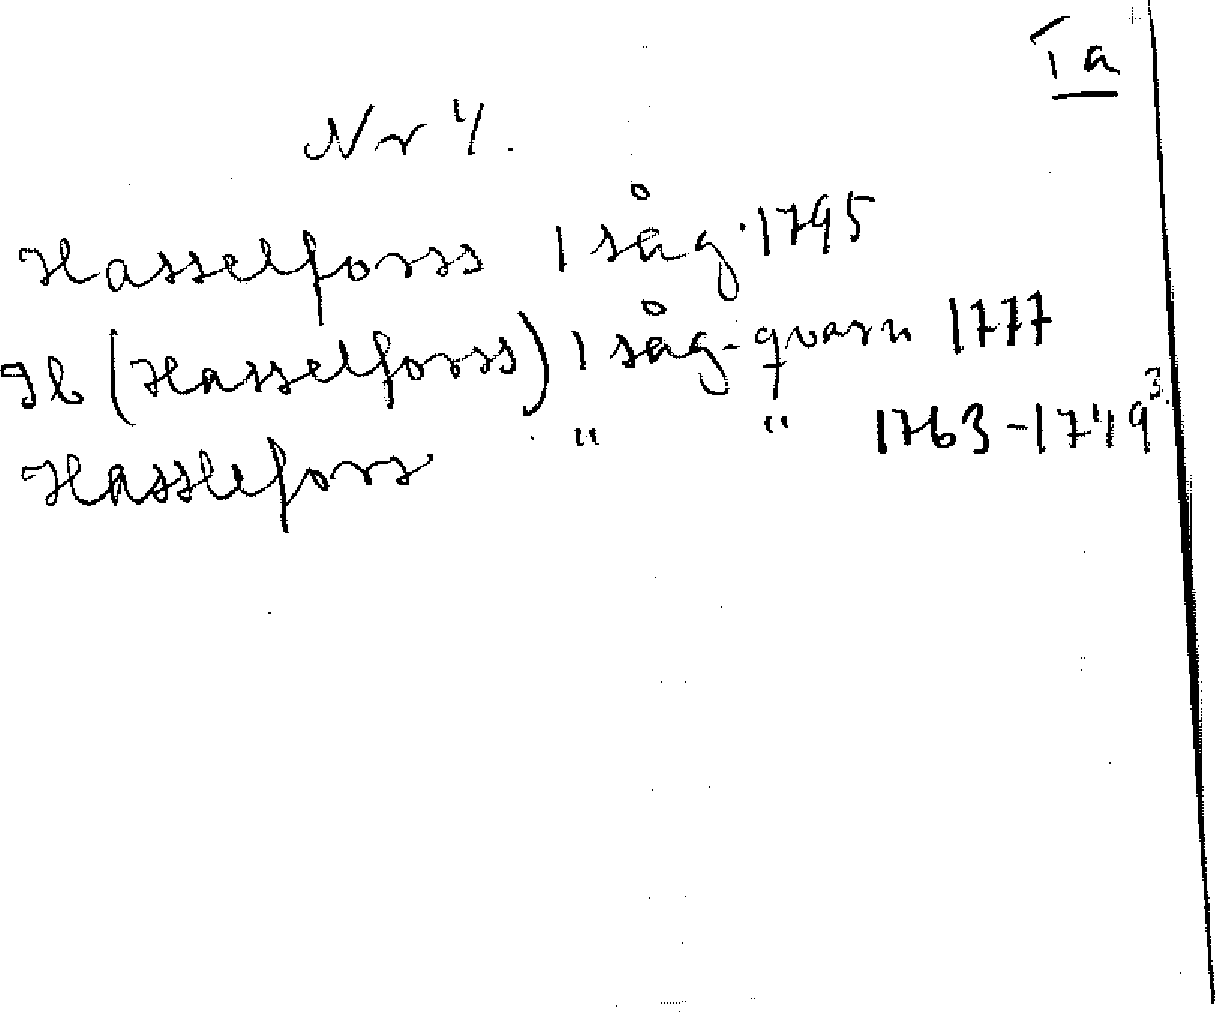 Ia
Nr 4.
Hasselforss 1 såg. 1795
Ib (Hasselforss) 1 såg-qvarn 1777
Hasslefors " " 1763-1749 3.